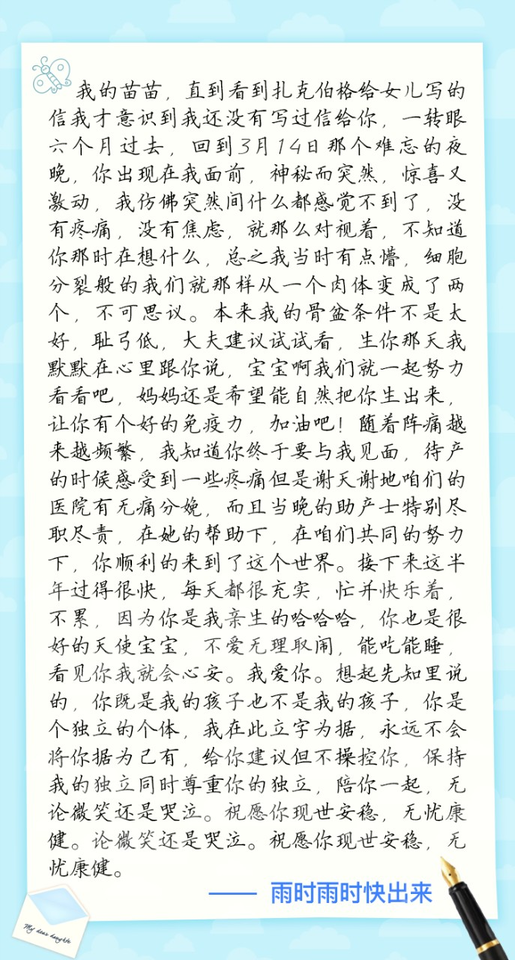 我的苗苗，直到看到扎克伯格给女儿写的
信我才意识到我还没有写过信给你，一转眼
六个月过去，回到3月14日那个难忘的夜
晚，你出现在我面前，神秘而突然，惊喜又
激动，我仿佛突然间什么都感觉不到了，没
有疼痛，没有焦虑，就那么对视着，不知道
你那时在想什么，总之我当时有点懵，细胞
分裂般的我们就那样从一个肉体变成了两
个，不可思议。本来我的骨盆条件不是太
好，耻弓低，大夫建议试试看，生你那天我
默默在心里跟你说，宝宝啊我们就一起努力
看看吧，妈妈还是希望能自然把你生出来，
让你有个好的免疫力，加油吧！随着阵痛越
来越频繁，我知道你终于要与我见面，待产
的时候感受到一些疼痛但是谢天谢地咱们的
医院有无痛分娩，而且当晚的助产士特别尽
职尽责，在她的帮助下，在咱们共同的努力
下，你顺利的来到了这个世界。接下来这半
年过得很快，每天都很充实，忙并快乐着，
不累，因为你是我亲生的哈哈哈，你也是很
好的天使宝宝，不爱无理取闹，能吃能睡，
看见你我就会心安。我爱你。想起先知里说
的，你既是我的孩子也不是我的孩子，你是
个独立的个体，我在此立字为据，永远不会
将你据为己有，给你建议但不操控你，保持
我的独立同时尊重你的独立，陪你一起，无
论微笑还是哭泣。祝愿你现世安稳，无忧康
健。论微笑还是哭泣。祝愿你现世安稳，无
忧康健。
—— 雨时雨时快出来
My dear daughter